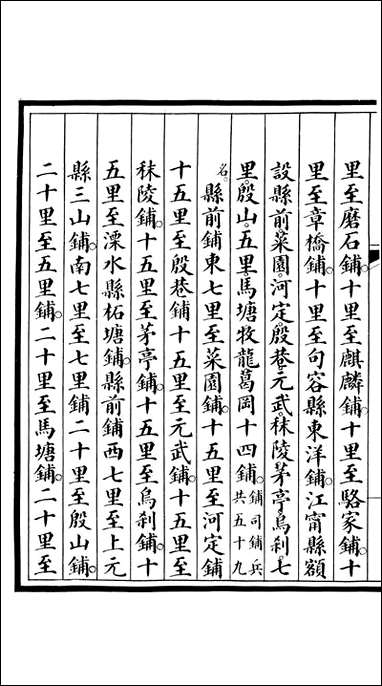 里至磨石鋪。十里至麒麟鋪。十里至駱家鋪。十
里至章橋鋪。十里至句容縣東洋鋪。江甯縣額
設縣前菜園。河定。殷巷。元武。秣陵茅亭烏刹。七
里。殷山。五里。馬塘牧龍葛岡十四鋪。鋪司鋪兵共五十九
名。
縣前鋪東七里至菜園鋪。十五里至河定鋪
十五里至殷巷鋪十五里至元武鋪。十五里至
秣陵鋪。十五里至茅亭鋪。十五里至烏刹鋪。十
五里至溧水縣柘塘鋪。縣前鋪西七里至上元
縣三山鋪。南七里至七里鋪二十里至殷山鋪。
二十里至五里鋪。二十里至馬塘鋪。二十里至